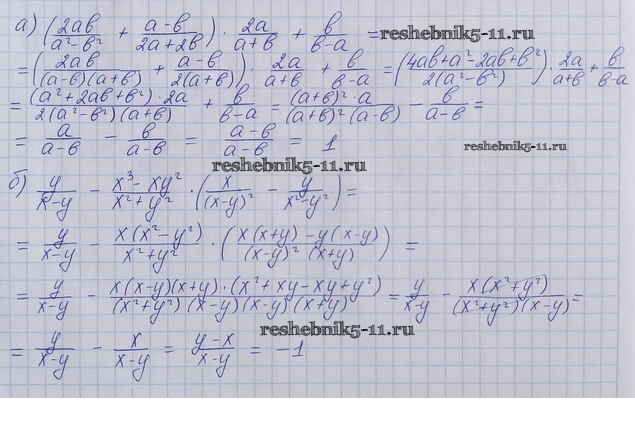 а) (2ab/(a²-b²) + (a-b)/(2a+2b)) · 2a/(a+b) + b/(b-a) = reshebnik5-11.ru
=(2ab/((a-b)(a+b)) + (a-b)/(2(a+b))) · 2a/(a+b) + b/(b-a) = (4ab+a²-2ab+b²)/(2(a²-b²)) · 2a/(a+b) + b/(b-a)
= ((a²+2ab+b²)·2a)/(2(a²-b²)(a+b)) + b/(b-a) = ((a+b)²·a)/((a+b)²(a-b)) - b/(a-b) =
= a/(a-b) - b/(a-b) = (a-b)/(a-b) = 1
reshebnik5-11.ru
reshebnik5-11.ru
б) y/(x-y) - (x³-xy²)/(x²+y²) · (x/(x-y)² - y/(x²-y²)) =
= y/(x-y) - x(x²-y²)/(x²+y²) · ((x(x+y)-y(x-y))/((x-y)²(x+y))) =
= y/(x-y) - (x(x-y)(x+y)·(x²+xy-xy+y²))/((x²+y²)(x-y)(x-y)(x+y)) = y/(x-y) - x(x²+y²)/((x²+y²)(x-y)) =
reshebnik5-11.ru
= y/(x-y) - x/(x-y) = (y-x)/(x-y) = -1